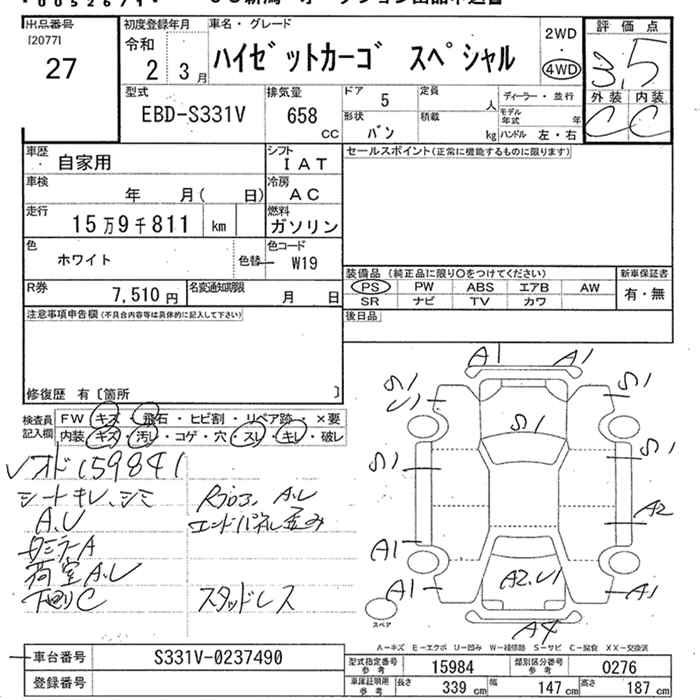 出品番号
[2077]
27
初度登録年月
令和
2 3月
車名・グレード
ハイゼットカーゴ スペシャル
2WD
・
4WD
評価点
3.5
外装 内装
C C
型式
EBD-S331V
排気量
658 CC
ドア 5
定員 人
ディーラー・並行
形状
バン
積載 kg
モデル年式 年
ハンドル 左・右
車歴
自家用
シフト
IAT
セールスポイント(正常に機能するものに限ります)
車検
年 月( 日)
冷房
AC
走行
15万9千811 km
燃料
ガソリン
色
ホワイト
色替
色コード
W19
装備品 (純正品に限り○をつけてください)
新車保証書
PS PW ABS エアB AW
SR ナビ TV カワ
有・無
R券
7,510円
名変通知期限
月 日
後日品
注意事項申告欄(不具合内容等は具体的に記入して下さい)
修復歴 有[箇所 ]
検査員
記入欄
FW キズ・飛石・ヒビ割・リペア跡・×要
内装 キズ・汚レ・コゲ・穴・スレ・キレ・破レ
オド159841
シートキレ、シミ
A.U
ミラーA
荷室A.U
下回りC
A.U
エンドパネル歪み
スタッドレス
A1 A1
S1 S1
U1
S1
S1 S1
A2
A1
A1 A2.U1 A1
A4
スペア
A－キズ E－エクボ U－凹み W－補修跡 S－サビ C－腐食 XX－交換済
車台番号
S331V-0237490
登録番号
型式指定番号
参考
15984
類別区分番号
参考
0276
車庫証明用
参考
長さ 339 cm
幅 147 cm
高さ 187 cm